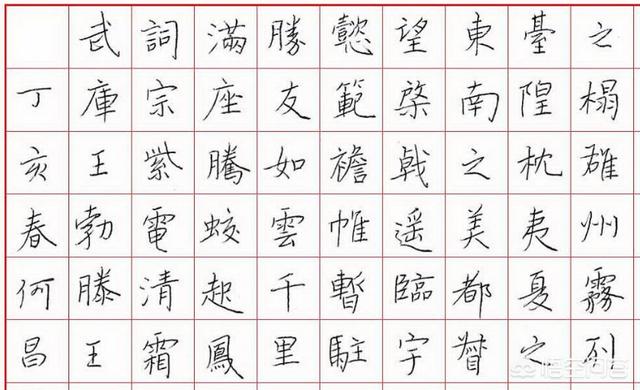 之榻雄州霧列
臺隍枕夷夏之
東南之美都督
望棨戟遥臨宇
懿範襜帷暫駐
勝友如雲千里
滿座騰蛟起鳳
詞宗紫電清霜
武庫王勃滕王
丁亥春何昌
悟空问答